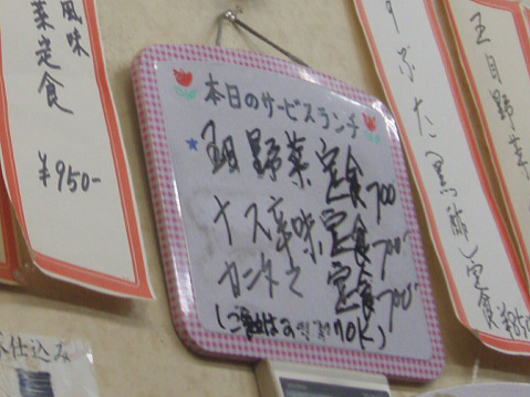 風味
菜定食
¥950-
本日のサービスランチ
五目野菜定食700
ナス辛味定食700
カニタマ 定食700
すぶた(黒酢)定食
五目野菜
仕込み